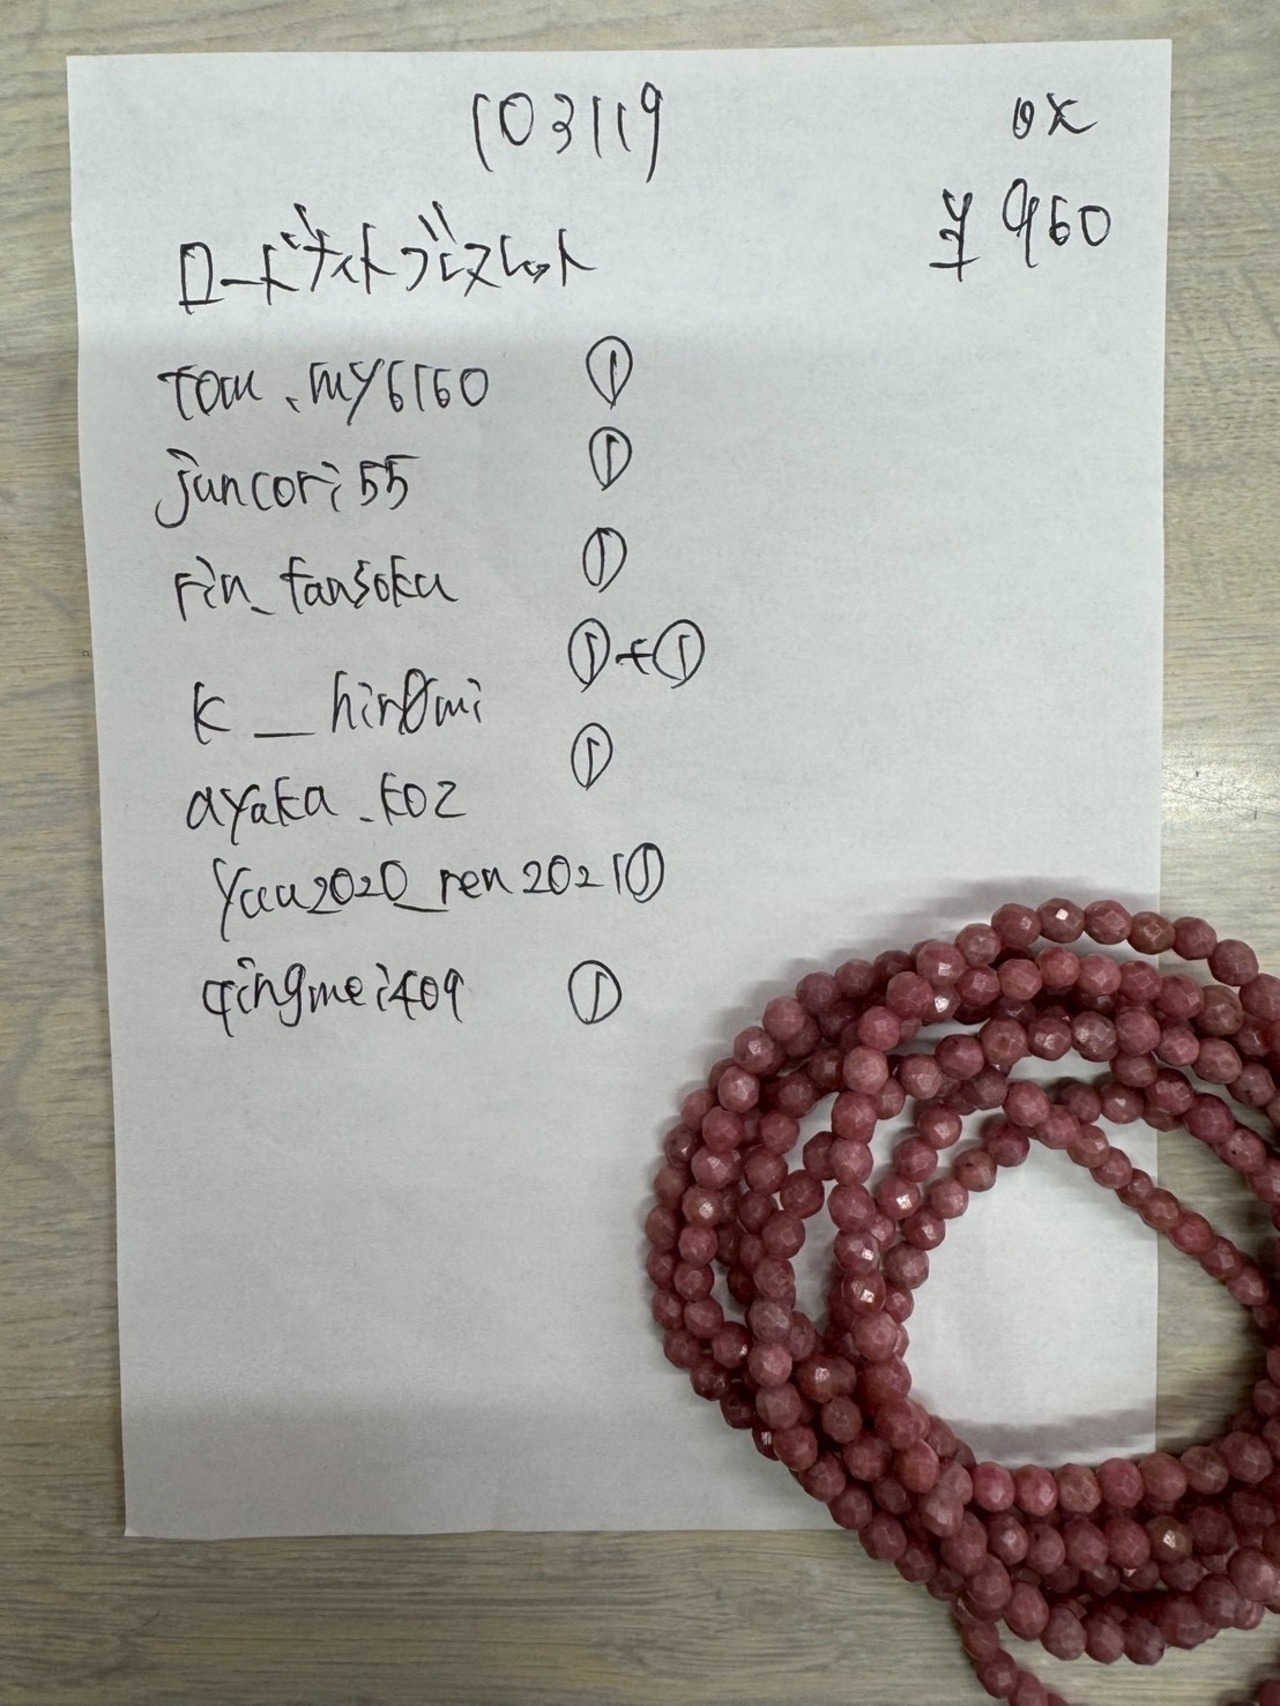 103119
OK
¥960
ロードナイトブレスレット
tom.my6160 ①
juncori55 ①
rin_tansoku ①
k__hir0mi ①+①
ayaka.k02 ①
yuu2020_ren2021 ①
qingmei409 ①